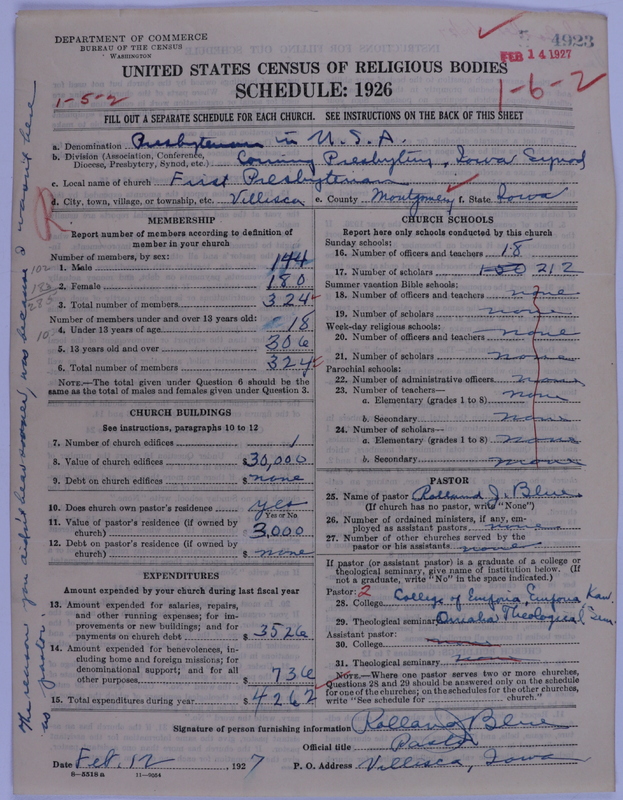 DEPARTMENT OF COMMERCE
BUREAU OF THE CENSUS
WASHINGTON
4923
FEB 14 1927
UNITED STATES CENSUS OF RELIGIOUS BODIES
SCHEDULE: 1926
1-5-2
1-6-2
FILL OUT A SEPARATE SCHEDULE FOR EACH CHURCH. SEE INSTRUCTIONS ON THE BACK OF THIS SHEET
a. Denomination Presbyterian in U.S.A.
b. Division (Association, Conference, Diocese, Presbytery, Synod, etc.) Corning Presbytery, Iowa Synod
c. Local name of church First Presbyterian
d. City, town, village, or township, etc. Villisca e. County Montgomery f. State Iowa
MEMBERSHIP
Report number of members according to definition of member in your church
Number of members, by sex:
1. Male 144
2. Female 180
3. Total number of members 324
Number of members under and over 13 years old:
4. Under 13 years of age 18
5. 13 years old and over 306
6. Total number of members 324
NOTE.—The total given under Question 6 should be the same as the total of males and females given under Question 3.
CHURCH BUILDINGS
See instructions, paragraphs 10 to 12
7. Number of church edifices 1
8. Value of church edifices $30,000
9. Debt on church edifices $none
10. Does church own pastor's residence yes
Yes or No
11. Value of pastor's residence (if owned by church) $3,000
12. Debt on pastor's residence (if owned by church) $none
EXPENDITURES
Amount expended by your church during last fiscal year
13. Amount expended for salaries, repairs, and other running expenses; for improvements or new buildings; and for payments on church debt $3526
14. Amount expended for benevolences, including home and foreign missions; for denominational support; and for all other purposes $736
15. Total expenditures during year $4262
CHURCH SCHOOLS
Report here only schools conducted by this church
Sunday schools:
16. Number of officers and teachers 18
17. Number of scholars 212
Summer vacation Bible schools:
18. Number of officers and teachers none
19. Number of scholars none
Week-day religious schools:
20. Number of officers and teachers none
21. Number of scholars none
Parochial schools:
22. Number of administrative officers none
23. Number of teachers—
a. Elementary (grades 1 to 8) none
b. Secondary none
24. Number of scholars—
a. Elementary (grades 1 to 8) none
b. Secondary none
PASTOR
25. Name of pastor Rolland J. Blue
(If church has no pastor, write "None")
26. Number of ordained ministers, if any, employed as assistant pastors none
27. Number of other churches served by the pastor or his assistants none
If pastor (or assistant pastor) is a graduate of a college or theological seminary, give name of institution below. (If not a graduate, write "No" in the space indicated.)
Pastor: 2
28. College College of Emporia, Emporia Kan.
29. Theological seminary Omaha Theological Sem.
Assistant pastor:
30. College none
31. Theological seminary none
NOTE.—Where one pastor serves two or more churches, Questions 28 and 29 should be answered only on the schedule for one of the churches; on the schedules for the other churches, write "See schedule for ______ church."
Signature of person furnishing information Rolland J. Blue
Official title Pastor
Date Feb. 12, 1927 P. O. Address Villisca, Iowa
8-5518a 11-9034
The reason you didn't hear sooner, was because I wasn't here as pastor.